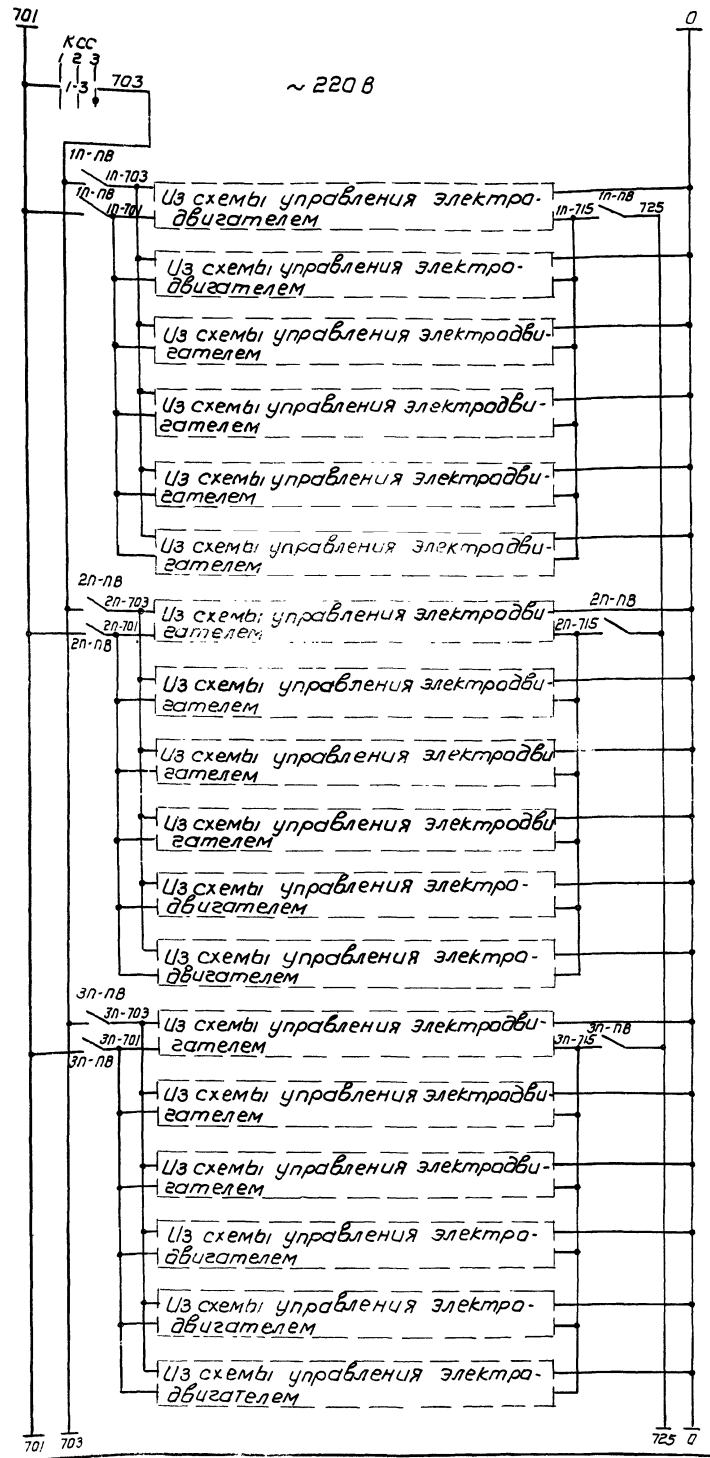 701
0
КСС
1 2 3
1-3
703
~ 220 В
1П-ПВ
1П-703
Из схемы управления электро-
двигателем
1П-ПВ
1П-701
1П-715
1П-ПВ
725
Из схемы управления электро-
двигателем
Из схемы управления электродви-
гателем
Из схемы управления электродви-
гателем
Из схемы управления электродви-
гателем
Из схемы управления электродви-
гателем
2П-ПВ
2П-703
Из схемы управления электродви-
гателем
2П-701
2П-ПВ
2П-715
2П-ПВ
Из схемы управления электродви-
гателем
Из схемы управления электродви
гателем
Из схемы управления электродви
гателем
Из схемы управления электро-
двигателем
Из схемы управления электро-
двигателем
3П-ПВ
3П-703
Из схемы управления электродви-
гателем
3П-701
3П-ПВ
3П-715
3П-ПВ
Из схемы управления электродви-
гателем
Из схемы управления электродви-
гателем
Из схемы управления электро-
двигателем
Из схемы управления электро-
двигателем
Из схемы управления электро-
двигателем
701
703
725
0